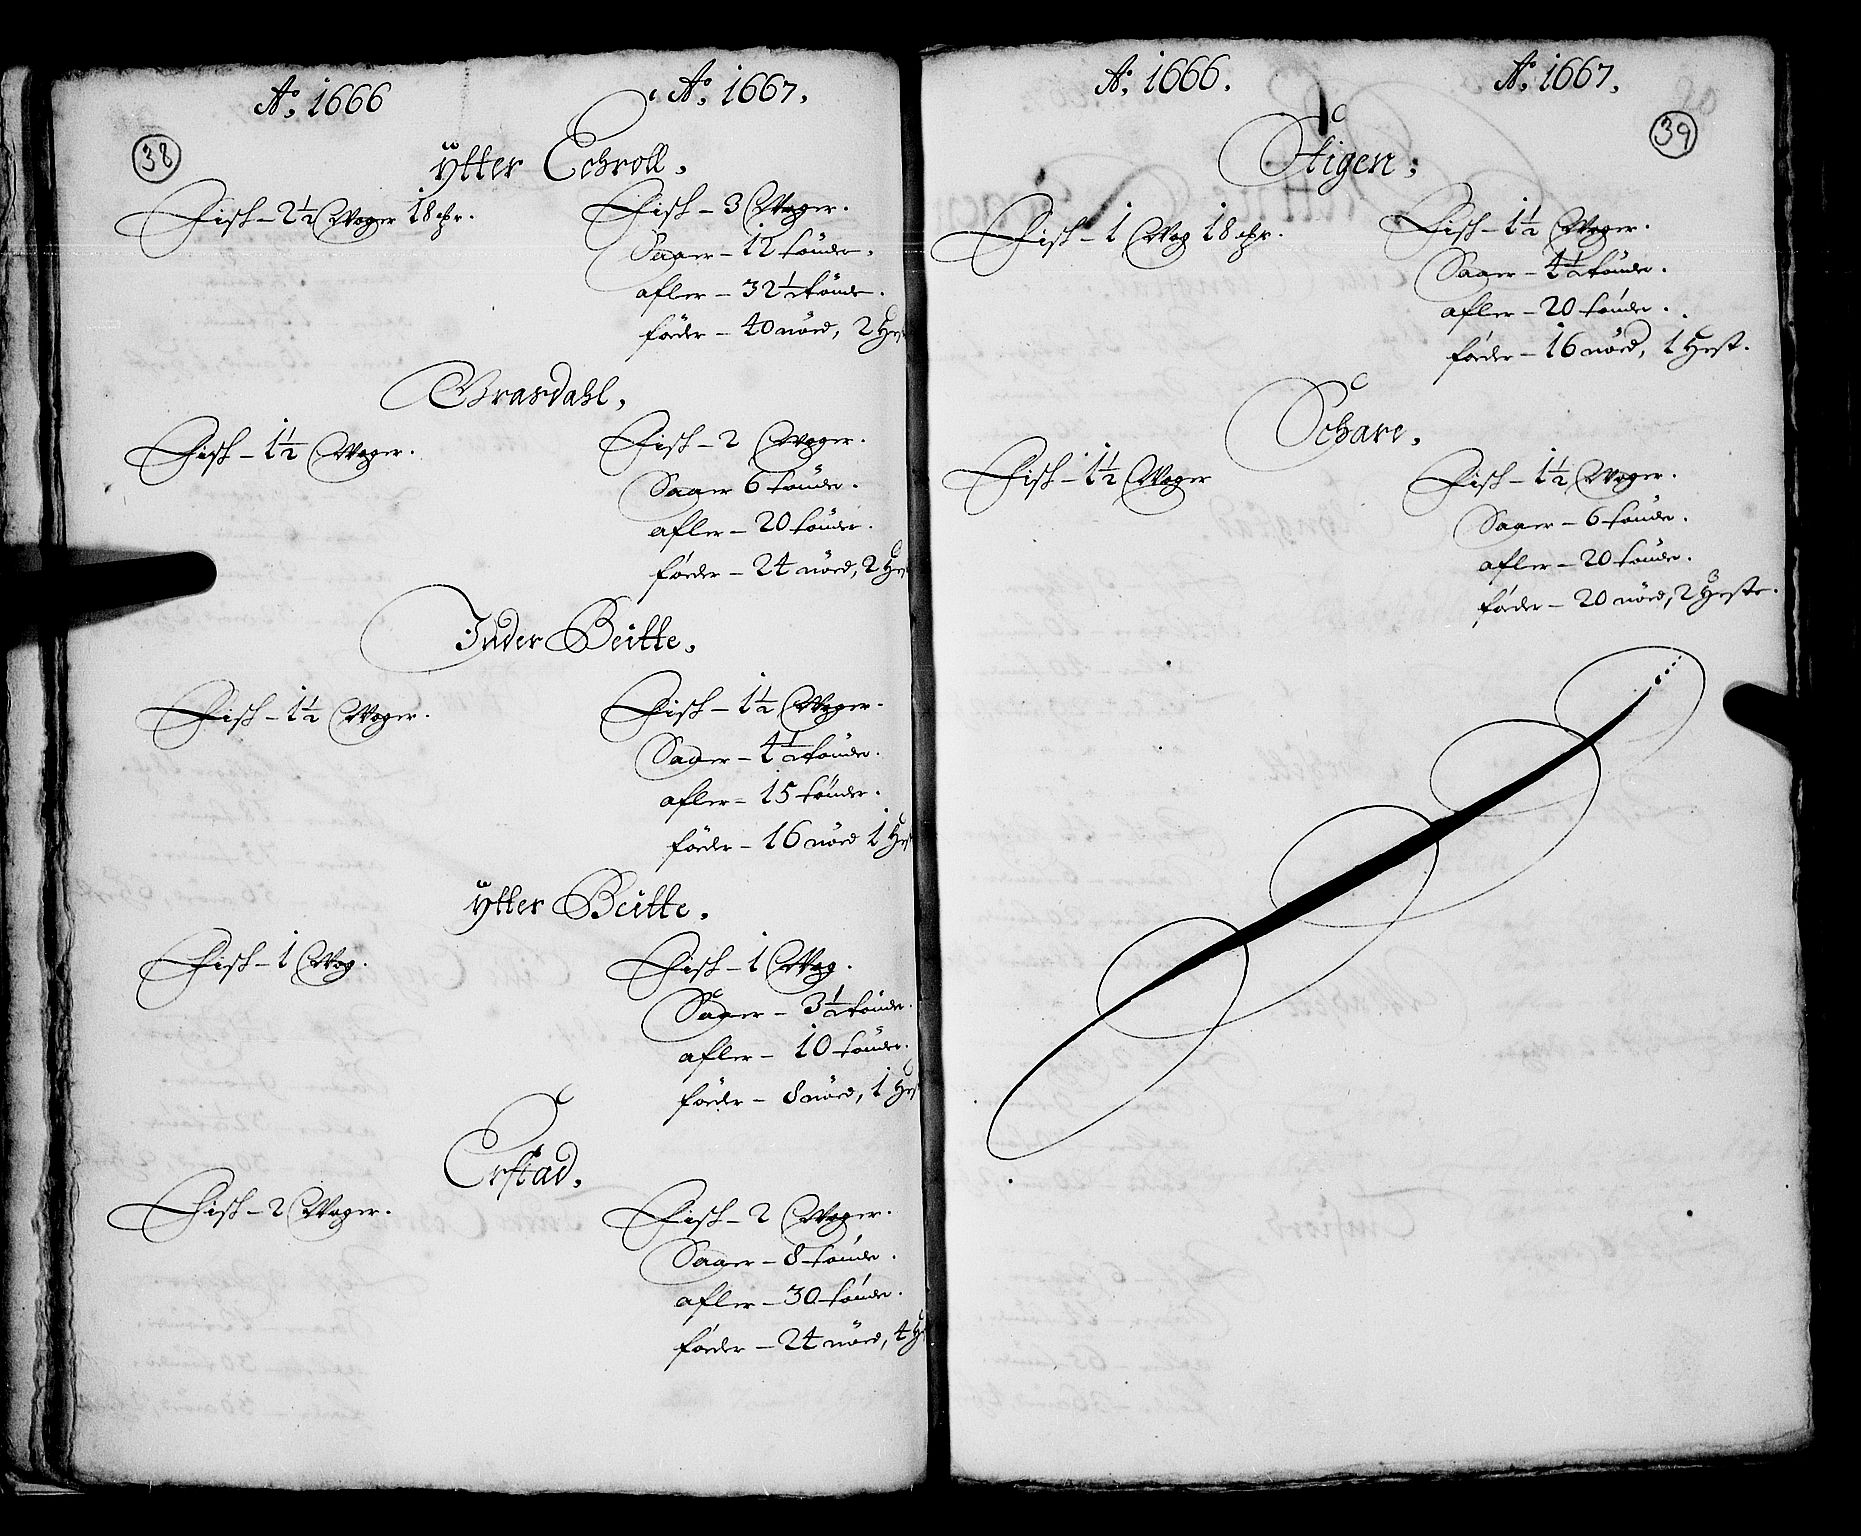 38
Aō. 1666
Aō. 1667.
ÿtter Echroll.
Fisk – 2½ Woger 18 ℔r.
Fisk – 3 Woger.
Saaer – 12 tönder.
afler – 32½ tönde.
föder – 40 nöed, 2 Hest
Grasdahl.
Fisk – 1½ Woger.
Fisk – 2 Woger.
Saaer 6 tönder.
afler – 20 tönder.
föder – 24 nöed, 2 Hes
Inder Beitte.
Fisk – 1½ Woger.
Fisk – 1½ Woger.
Saaer – 4½ tönder.
afler – 15 tönder.
föder – 16 nöed 1 Hes
ÿtter Beitte.
Fisk – 1 Wog.
Fisk – 1 Wog.
Saaer – 3½ tönder.
afler – 10 tönder.
föder – 8 nöed, 1 Hes
Erstad.
Fisk – 2 Woger.
Fisk – 2 Woger.
Saaer – 8 tönder.
afler – 30 tönder.
föder – 24 nöed, 4 He
Aō. 1666.
Aō. 1667.
39
Stigen.
Fisk – 1 Wog 18 ℔r.
Fisk – 1½ Woger.
Saaer – 4½ tönder.
afler – 20 tönder.
föder – 16 nöed, 1 Hest.
Schare.
Fisk – 1½ Woger
Fisk – 1½ Woger.
Saaer – 6 tönder.
afler – 20 tönder.
föder – 20 nöed, 2 Heste.